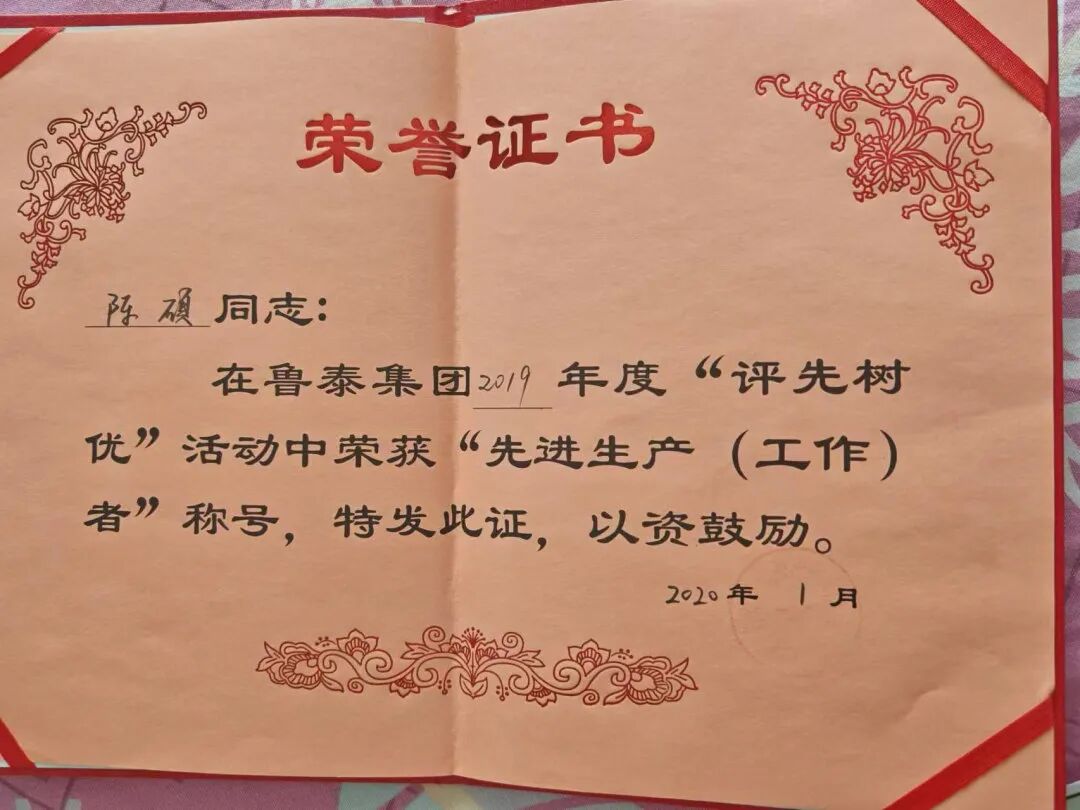 荣誉证书
陈硕同志：
在鲁泰集团2019年度“评先树
优”活动中荣获“先进生产（工作）
者”称号，特发此证，以资鼓励。
2020年 1月